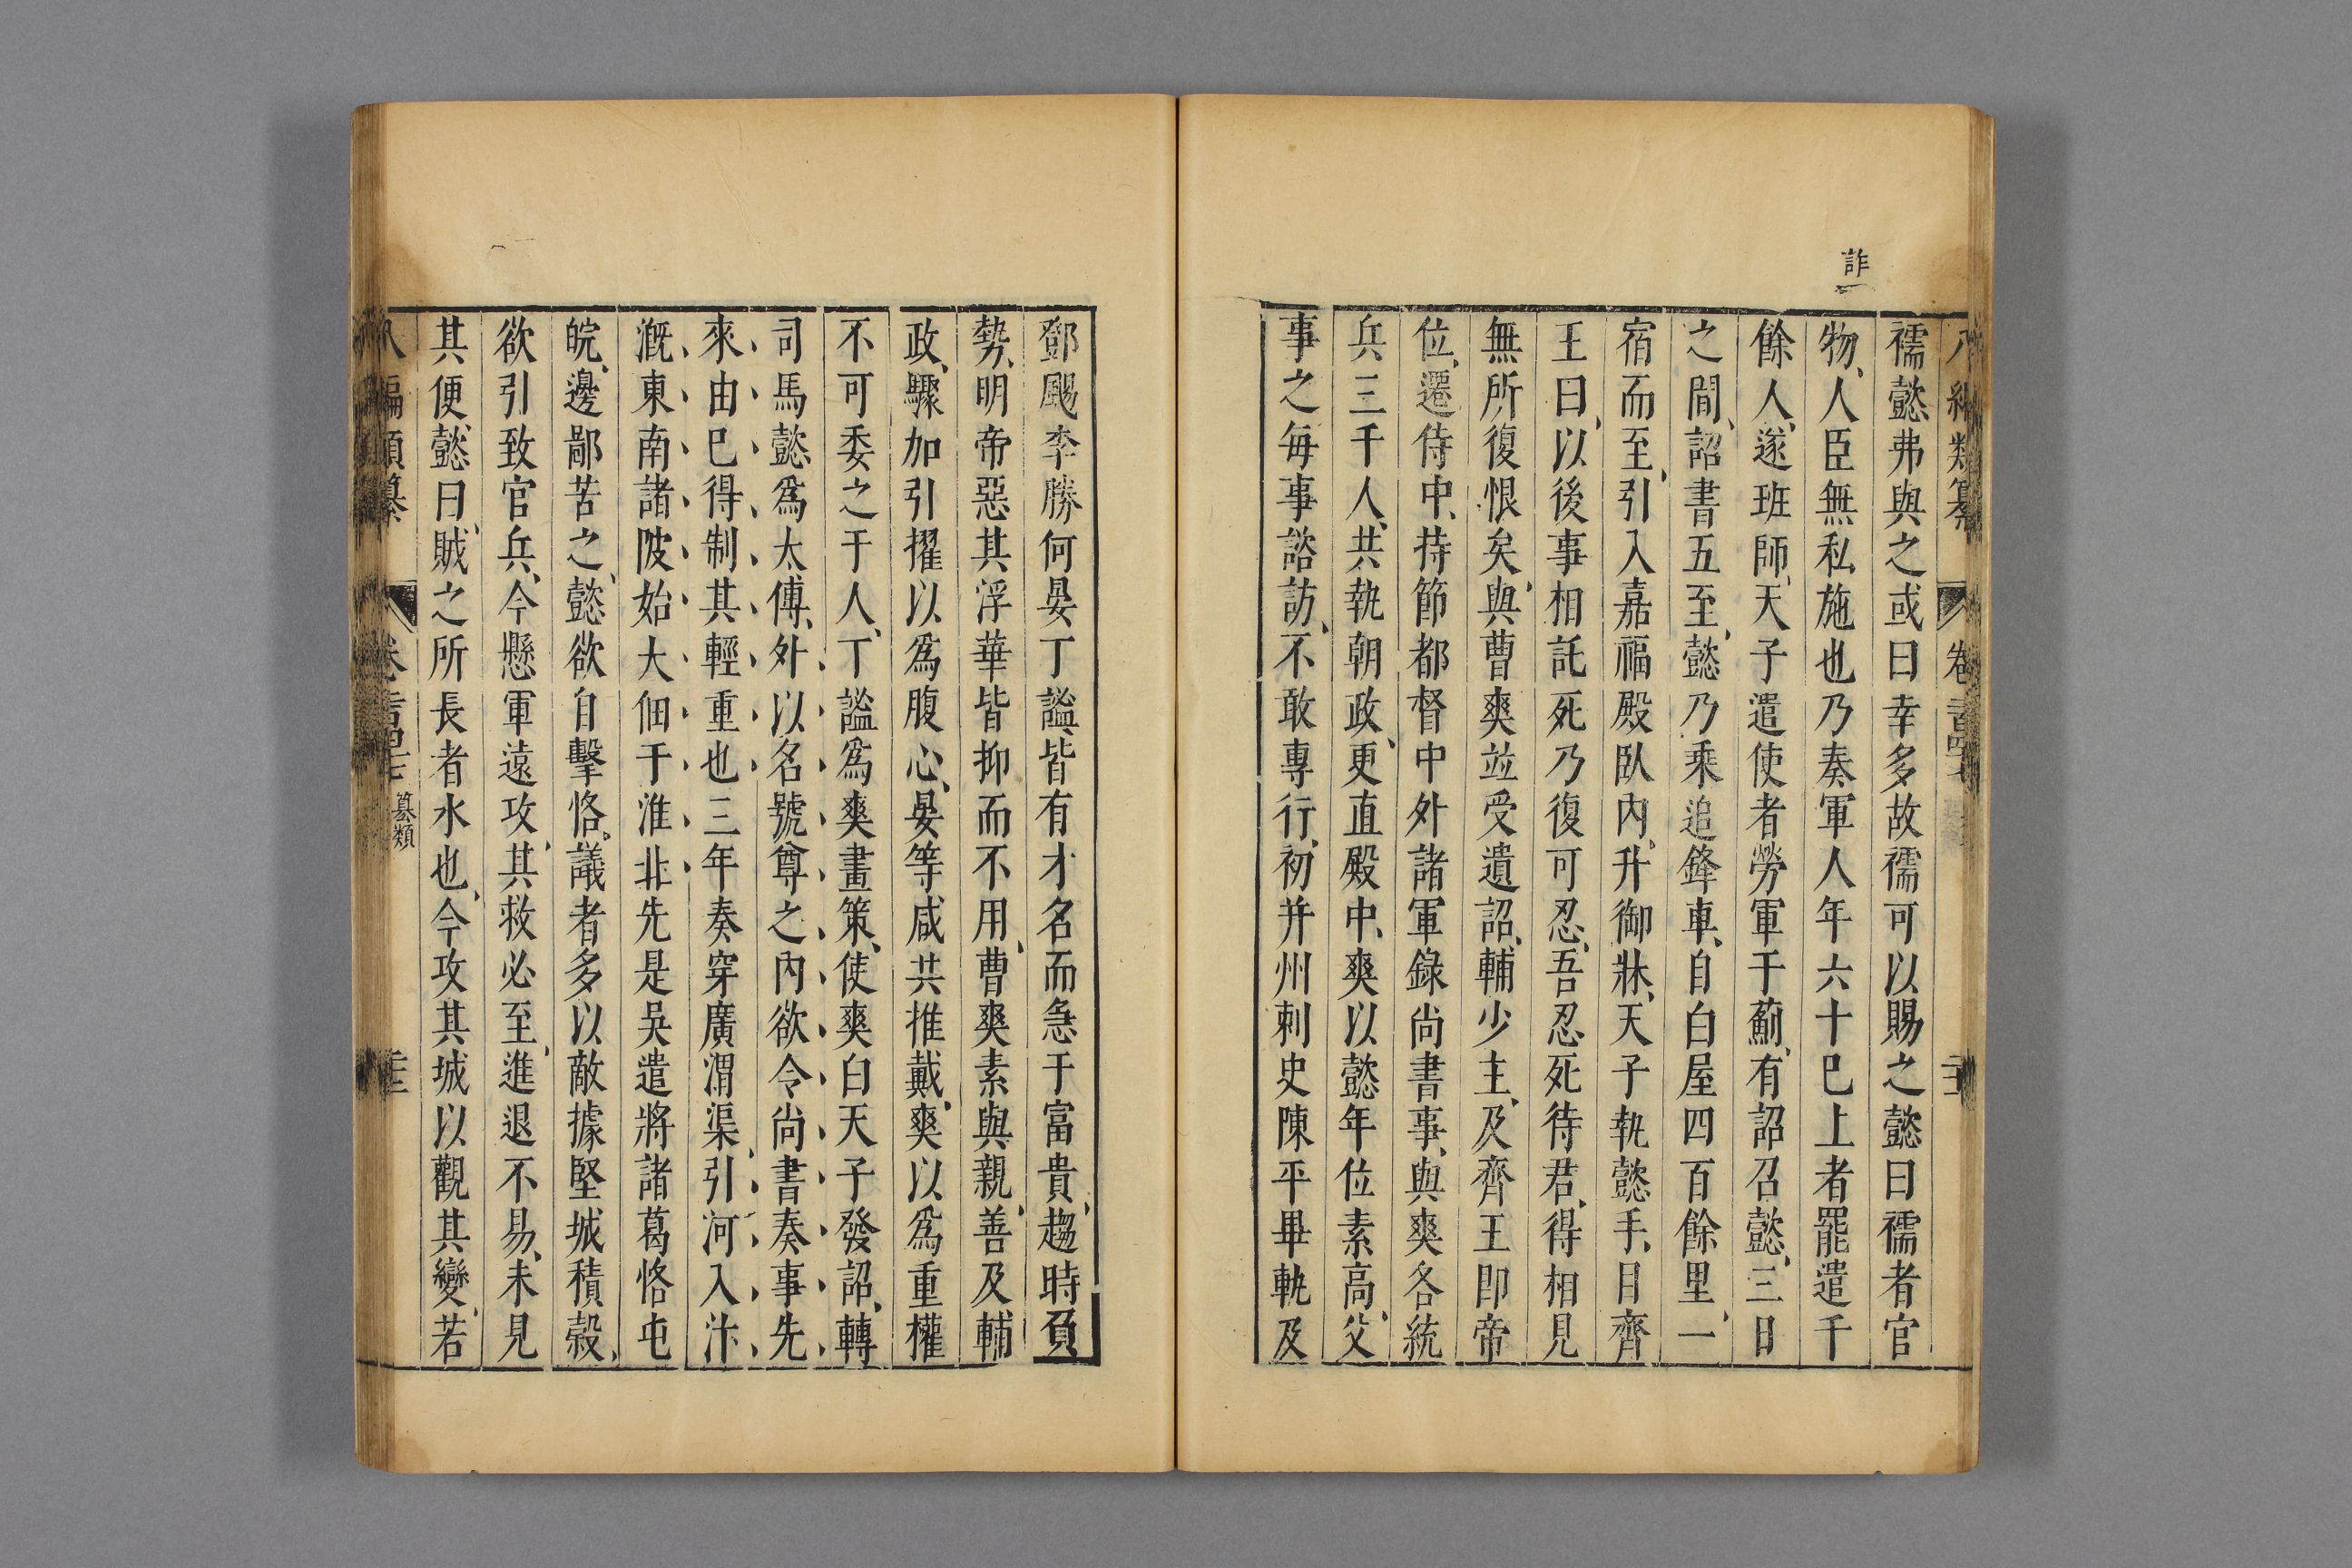 詐
八編類纂 卷一百四七
襦懿弗與之或曰幸多故襦可以賜之懿曰襦者官
物、人臣無私施也乃奏軍人年六十巳上者罷遣千
餘人、遂班師、天子遣使者勞軍于薊、有詔召懿、三日
之間、詔書五至、懿乃乘追鋒車、自白屋四百餘里、一
宿而至、引入嘉福殿臥内、升御牀、天子執懿手、目齊
王曰、以後事相託死乃復可忍、吾忍死待君、得相見
無所復恨矣、與曹爽並受遺詔、輔少主、及齊王即帝
位、遷侍中、持節都督中外諸軍錄尚書事、與爽各統
兵三千人、共執朝政、更直殿中、爽以懿年位素高、父
事之毎事諮訪、不敢專行、初并州刺史陳平畢軌及
鄧颺李勝何晏丁謐、皆有才名而急于富貴、趨時負
勢、明帝惡其浮華皆抑而不用、曹爽素與親善、及輔
政、驟加引擢以爲腹心、晏等咸共推戴、爽以爲重權
不可委之于人、丁謐爲爽畫策、使爽白天子發詔、轉
司馬懿爲太傅、外以名號尊之、内欲令尚書奏事、先
來由巳得制其輕重也三年奏穿廣漕渠、引河入汴、
溉東南諸陂始大佃于淮北、先是吳遣將諸葛恪屯
皖、邊鄙苦之、懿欲自擊恪、議者多以敵據堅城積穀、
欲引致官兵、今懸軍遠攻、其救必至、進退不易、未見
其便、懿曰、賊之所長者水也、今攻其城以觀其變、若
八編類纂 卷一百四七 篡類